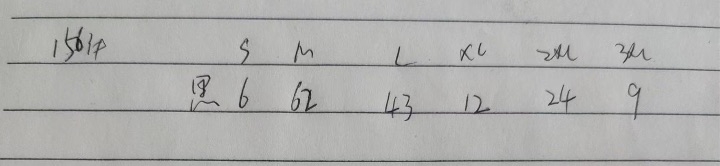 S M L XL 2XL 3XL
黑 6 62 43 12 24 9